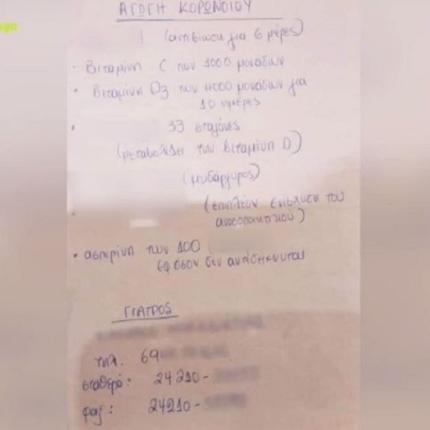 ΑΓΩΓΗ ΚΟΡΩΝΟΙΟΥ
(αντιβίωση για 6 μέρες)
· Βιταμίνη C των 1000 μονάδων
· Βιταμίνη D3 των 4000 μονάδων για
10 ημέρες
· 33 σταγόνες
(μεταβολίζει την βιταμίνη D)
(ψευδάργυρος)
· (επιπλέον ενίσχυση του
ανοσοποιητικού)
· ασπιρίνη των 100
εφόσον δεν αντιδείκνυται
ΓΙΑΤΡΟΣ
τηλ. 69
σταθερό: 24210-
φαξ: 24210-